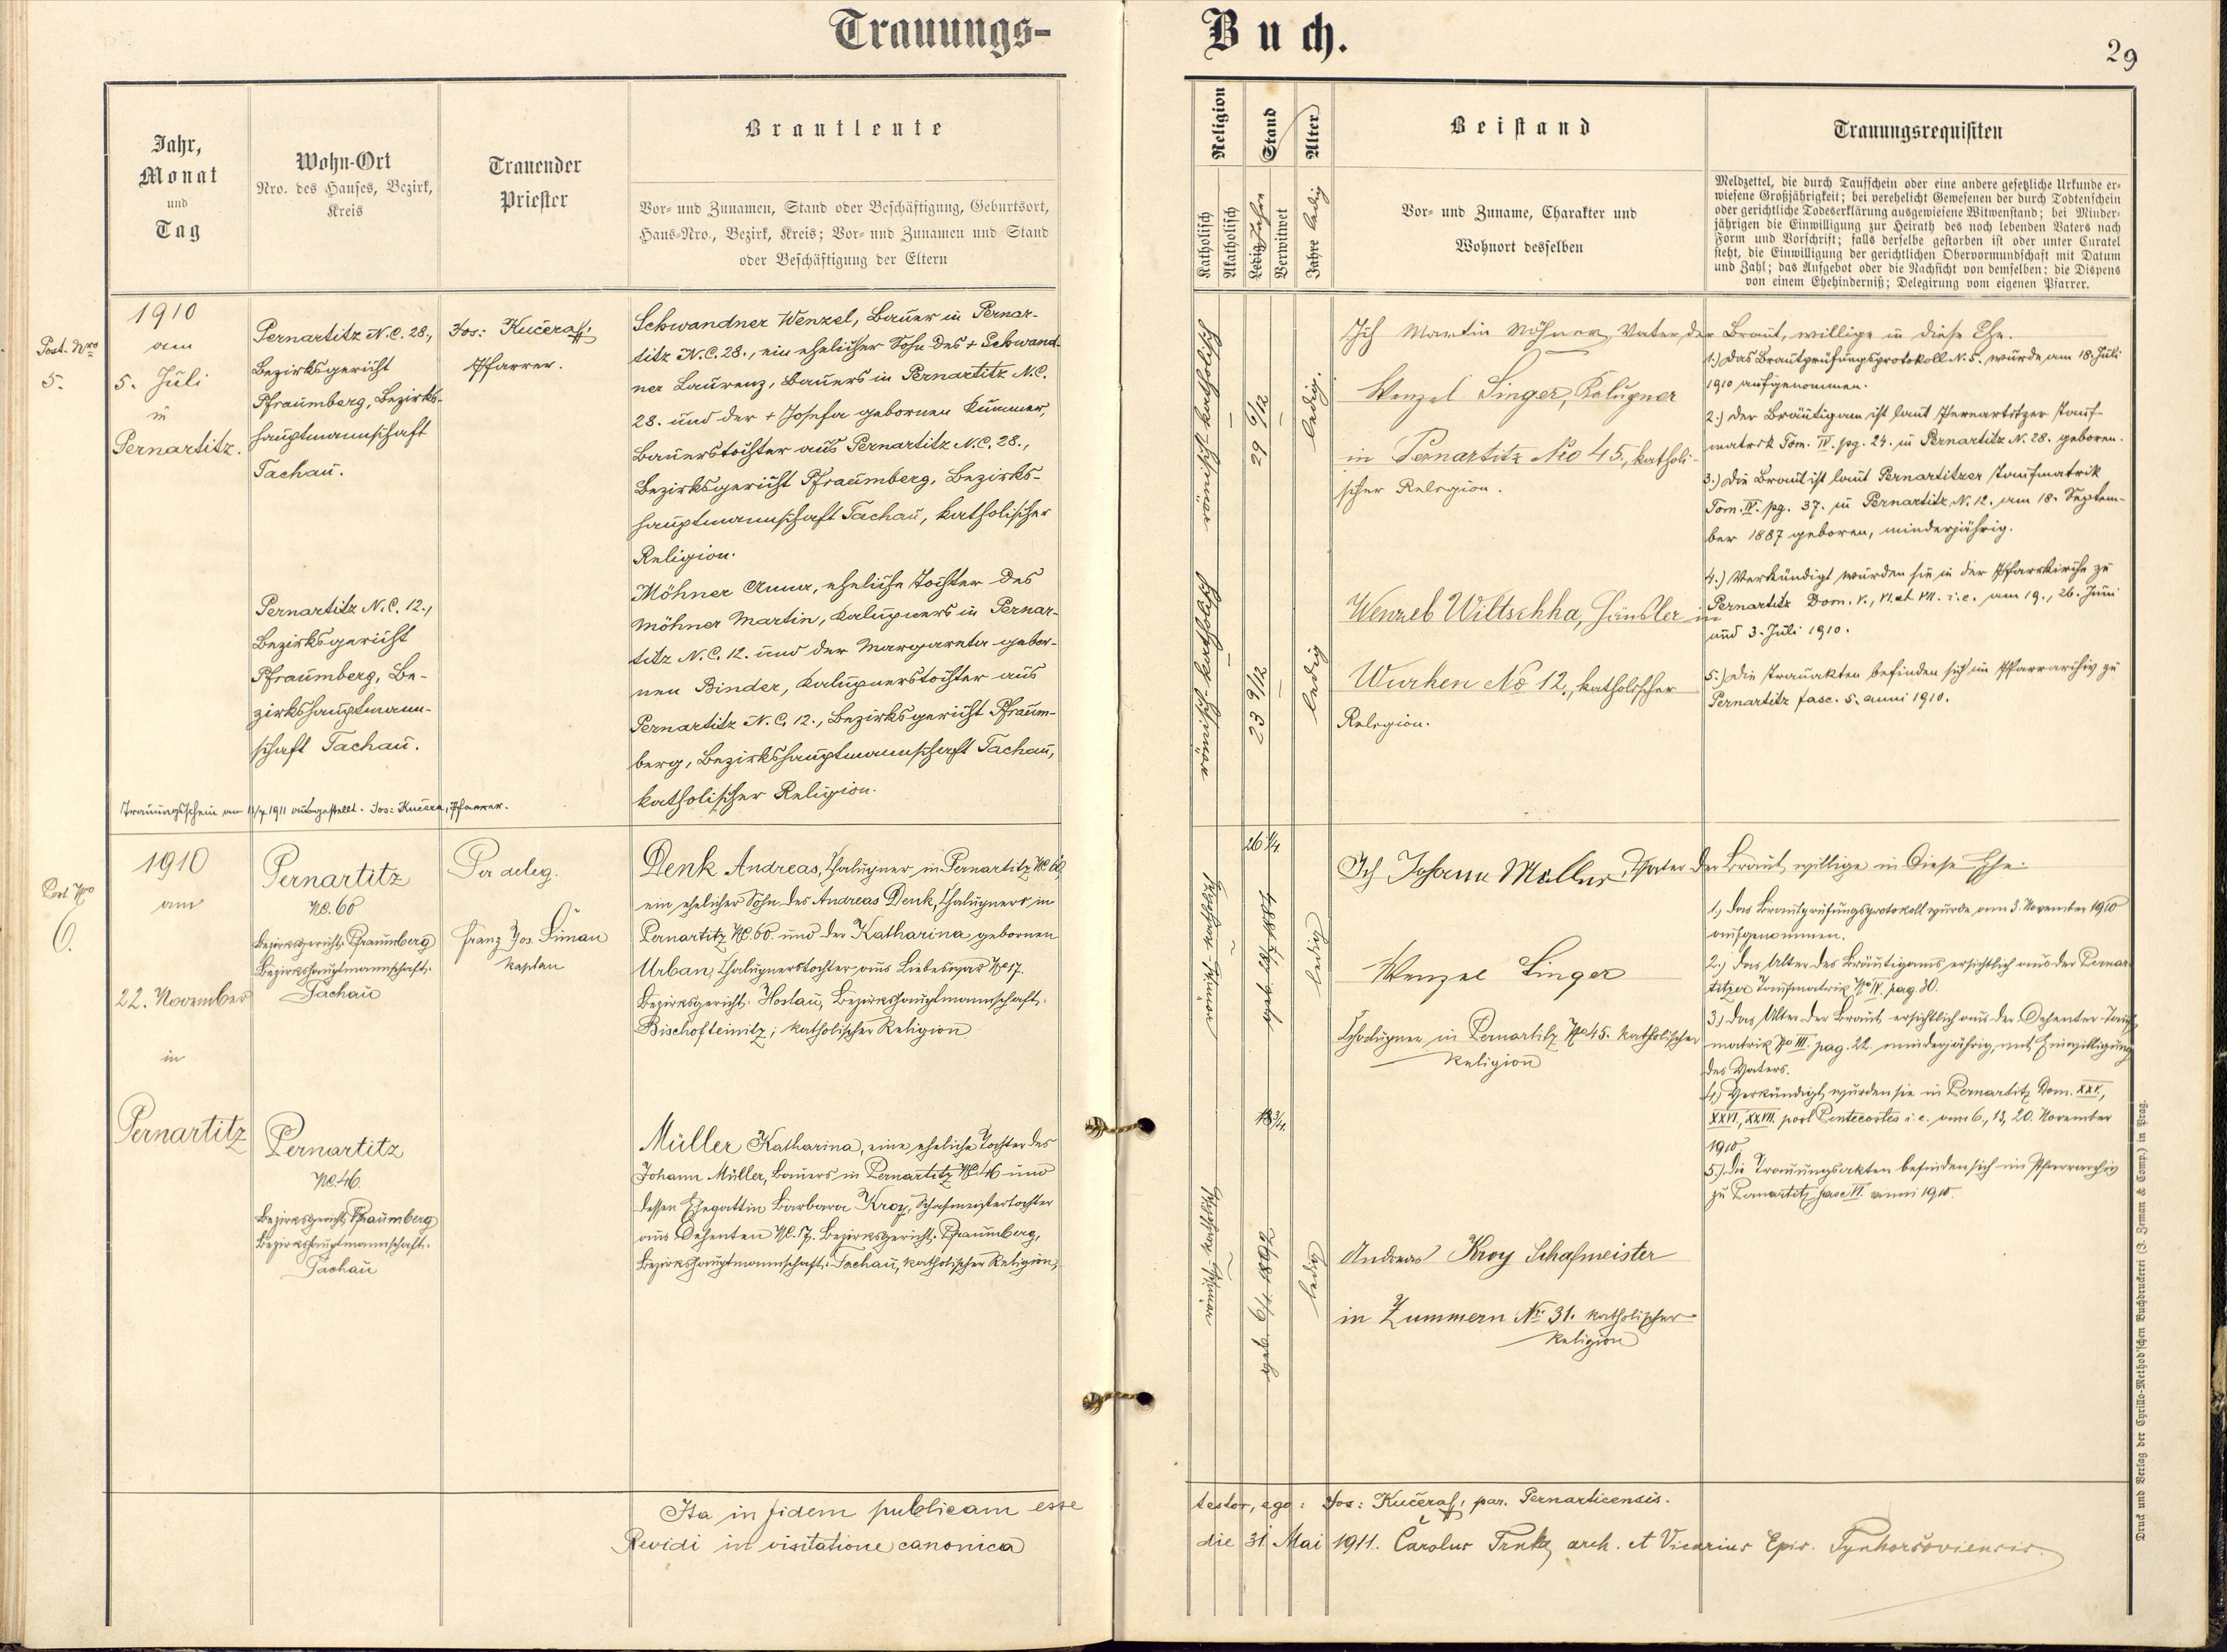 Trauungs-
Buch.
29
Jahr,
Monat
und
Tag
Wohn-Ort
Nro. des Hauses, Bezirk,
Kreis
Trauender
Priester
Brautleute
Vor- und Zunamen, Stand oder Beschäftigung, Geburtsort,
Haus-Nro., Bezirk, Kreis; Vor- und Zunamen und Stand
oder Beschäftigung der Eltern
Religion
Katholisch
Akatholisch
Stand
Ledig
Verwitwet
Alter
Jahre ledig
Beistand
Vor- und Zuname, Charakter und
Wohnort desselben
Trauungsrequisiten
Meldzettel, die durch Taufschein oder eine andere gesetzliche Urkunde er-
wiesene Großjährigkeit; bei verehelicht Gewesenen der durch Todtenschein
oder gerichtliche Todeserklärung ausgewiesene Witwenstand; bei Minder-
jährigen die Einwilligung zur Heirath des noch lebenden Vaters nach
Form und Vorschrift; falls derselbe gestorben ist oder unter Curatel
steht, die Einwilligung der gerichtlichen Obervormundschaft mit Datum
und Zahl; das Aufgebot oder die Nachsicht von demselben; die Dispens
von einem Ehehinderniß; Delegirung vom eigenen Pfarrer.
Post. Nro
5.
1910
am
5. Juli
in
Pernartitz.
Pernartitz N.C. 28.,
Bezirksgericht
Pfraumberg, Bezirks-
hauptmannschaft
Tachau.
Jos: Kučera,
Pfarrer.
Schwandner Wenzel, Bauer in Pernar-
titz N.C. 28., ein ehelicher Sohn des + Schwand-
ner Laurenz, Bauers in Pernartitz N.C.
28. und der + Josefa gebornen Kummer,
Bauerstochter aus Pernartitz N.C. 28.,
Bezirksgericht Pfraumberg, Bezirks-
hauptmannschaft Tachau, katholischer
Religion.
römisch-katholisch
29 9/12
ledig.
Ich Martin Möhner, Vater der Braut, willige in diese Ehe.
Wenzel Singer, Kalupner
in Pernartitz No 45, katholi-
scher Religion.
1.) Das Brautprüfungsprotokoll N. 5. wurde am 18. Juli
1910 aufgenommen.
2.) Der Bräutigam ist laut Pernartitzer Tauf-
matrik Tom. IV. pg. 24. in Pernartitz N. 28. geboren.
3.) Die Braut ist laut Pernartitzer Taufmatrik
Tom. IV. pg. 37. in Pernartitz N. 12. am 18. Septem-
ber 1887 geboren, minderjährig.
4.) Verkündigt wurden sie in der Pfarrkirche zu
Pernartitz Dom. V., VI. et VII. i.e. am 19., 26. Juni
und 3. Juli 1910.
5.) Die Trauakten befinden sich im Pfarrarchiv zu
Pernartitz fasc. 5. anni 1910.
Pernartitz N.C. 12.,
Bezirksgericht
Pfraumberg, Be-
zirkshauptmann-
schaft Tachau.
Möhner Anna, eheliche Tochter des
Möhner Martin, Kalupners in Pernar-
titz N.C. 12. und der Margareta gebor-
nen Binder, Kalupnerstochter aus
Pernartitz N.C. 12., Bezirksgericht Pfraum-
berg, Bezirkshauptmannschaft Tachau,
katholischer Religion.
römisch-katholisch
23 9/12
ledig
Wenzel Wiltschka, Häusler in
Wurken No 12, katholischer
Religion.
Trauungsschein am 11/7 1911 ausgestellt. Jos: Kučera, Pfarrer.
Post Nro
6.
1910
am
22. November
in
Pernartitz
Pernartitz
NC. 60
Bezirksgericht: Pfraumberg
Bezirkshauptmannschaft:
Tachau
Per deleg.
Franz Jos. Šiman
Kaplan
Denk Andreas, Chalupner in Pernartitz NC 60,
ein ehelicher Sohn des Andreas Denk, Chalupners in
Pernartitz NC. 60. und der Katharina gebornen
Urban, Chalupnerstochter aus Liebeswar No 17.
Bezirksgericht: Hostau, Bezirkshauptmannschaft:
Bischofteinitz; katholischer Religion
26 1/4
römisch-katholisch
geb. 1884
ledig
Ich Johann Müller, Vater der Braut, willige in diese Ehe.
Wenzel Singer
Chalupner in Pernartitz No 45. katholischer
Religion
1.) Das Brautprüfungsprotokoll wurde am 3. November 1910
aufgenommen.
2.) Das Alter des Bräutigams ersichtlich aus der Pernar-
titzer Taufmatrik No IV. pag. 30.
3.) Das Alter der Braut ersichtlich aus der Dehenter Tauf-
matrik No III. pag. 22. minderjährig, mit Einwilligung
des Vaters.
4.) Verkündigt wurden sie in Pernartitz Dom. XXV.,
XXVI., XXVII. post Pentecostes i.e. am 6., 13., 20. November
1910.
5.) Die Trauungsakten befinden sich im Pfarrarchiv
zu Pernartitz fasc VI. anni 1910.
Pernartitz
NC. 46.
Bezirksgericht: Pfraumberg
Bezirkshauptmannschaft:
Tachau
Müller Katharina, eine eheliche Tochter des
Johann Müller, Bauers in Pernartitz NC. 46 und
dessen Ehegattin Barbara Kroy, Schafmeisterstochter
aus Dehenten NC. 17. Bezirksgericht: Pfraumberg,
Bezirkshauptmannschaft: Tachau, katholischer Religion,
18 3/4.
römisch katholisch
geb. 6/1. 1892
ledig
Andreas Kroy Schafmeister
in Zummern Nr. 31. katholischer
Religion
Ita in fidem publicam esse testor, ego: Jos: Kučera, par. Pernarticensis.
Revidi in visitatione canonica die 31 Mai 1911. Carolus Trnka, arch. et Vicarius Epis. Tynhoršoviensis.
Druck und Verlag der Cyrillo-Method'schen Buchdruckerei (J. Zeman & Comp.) in Prag.